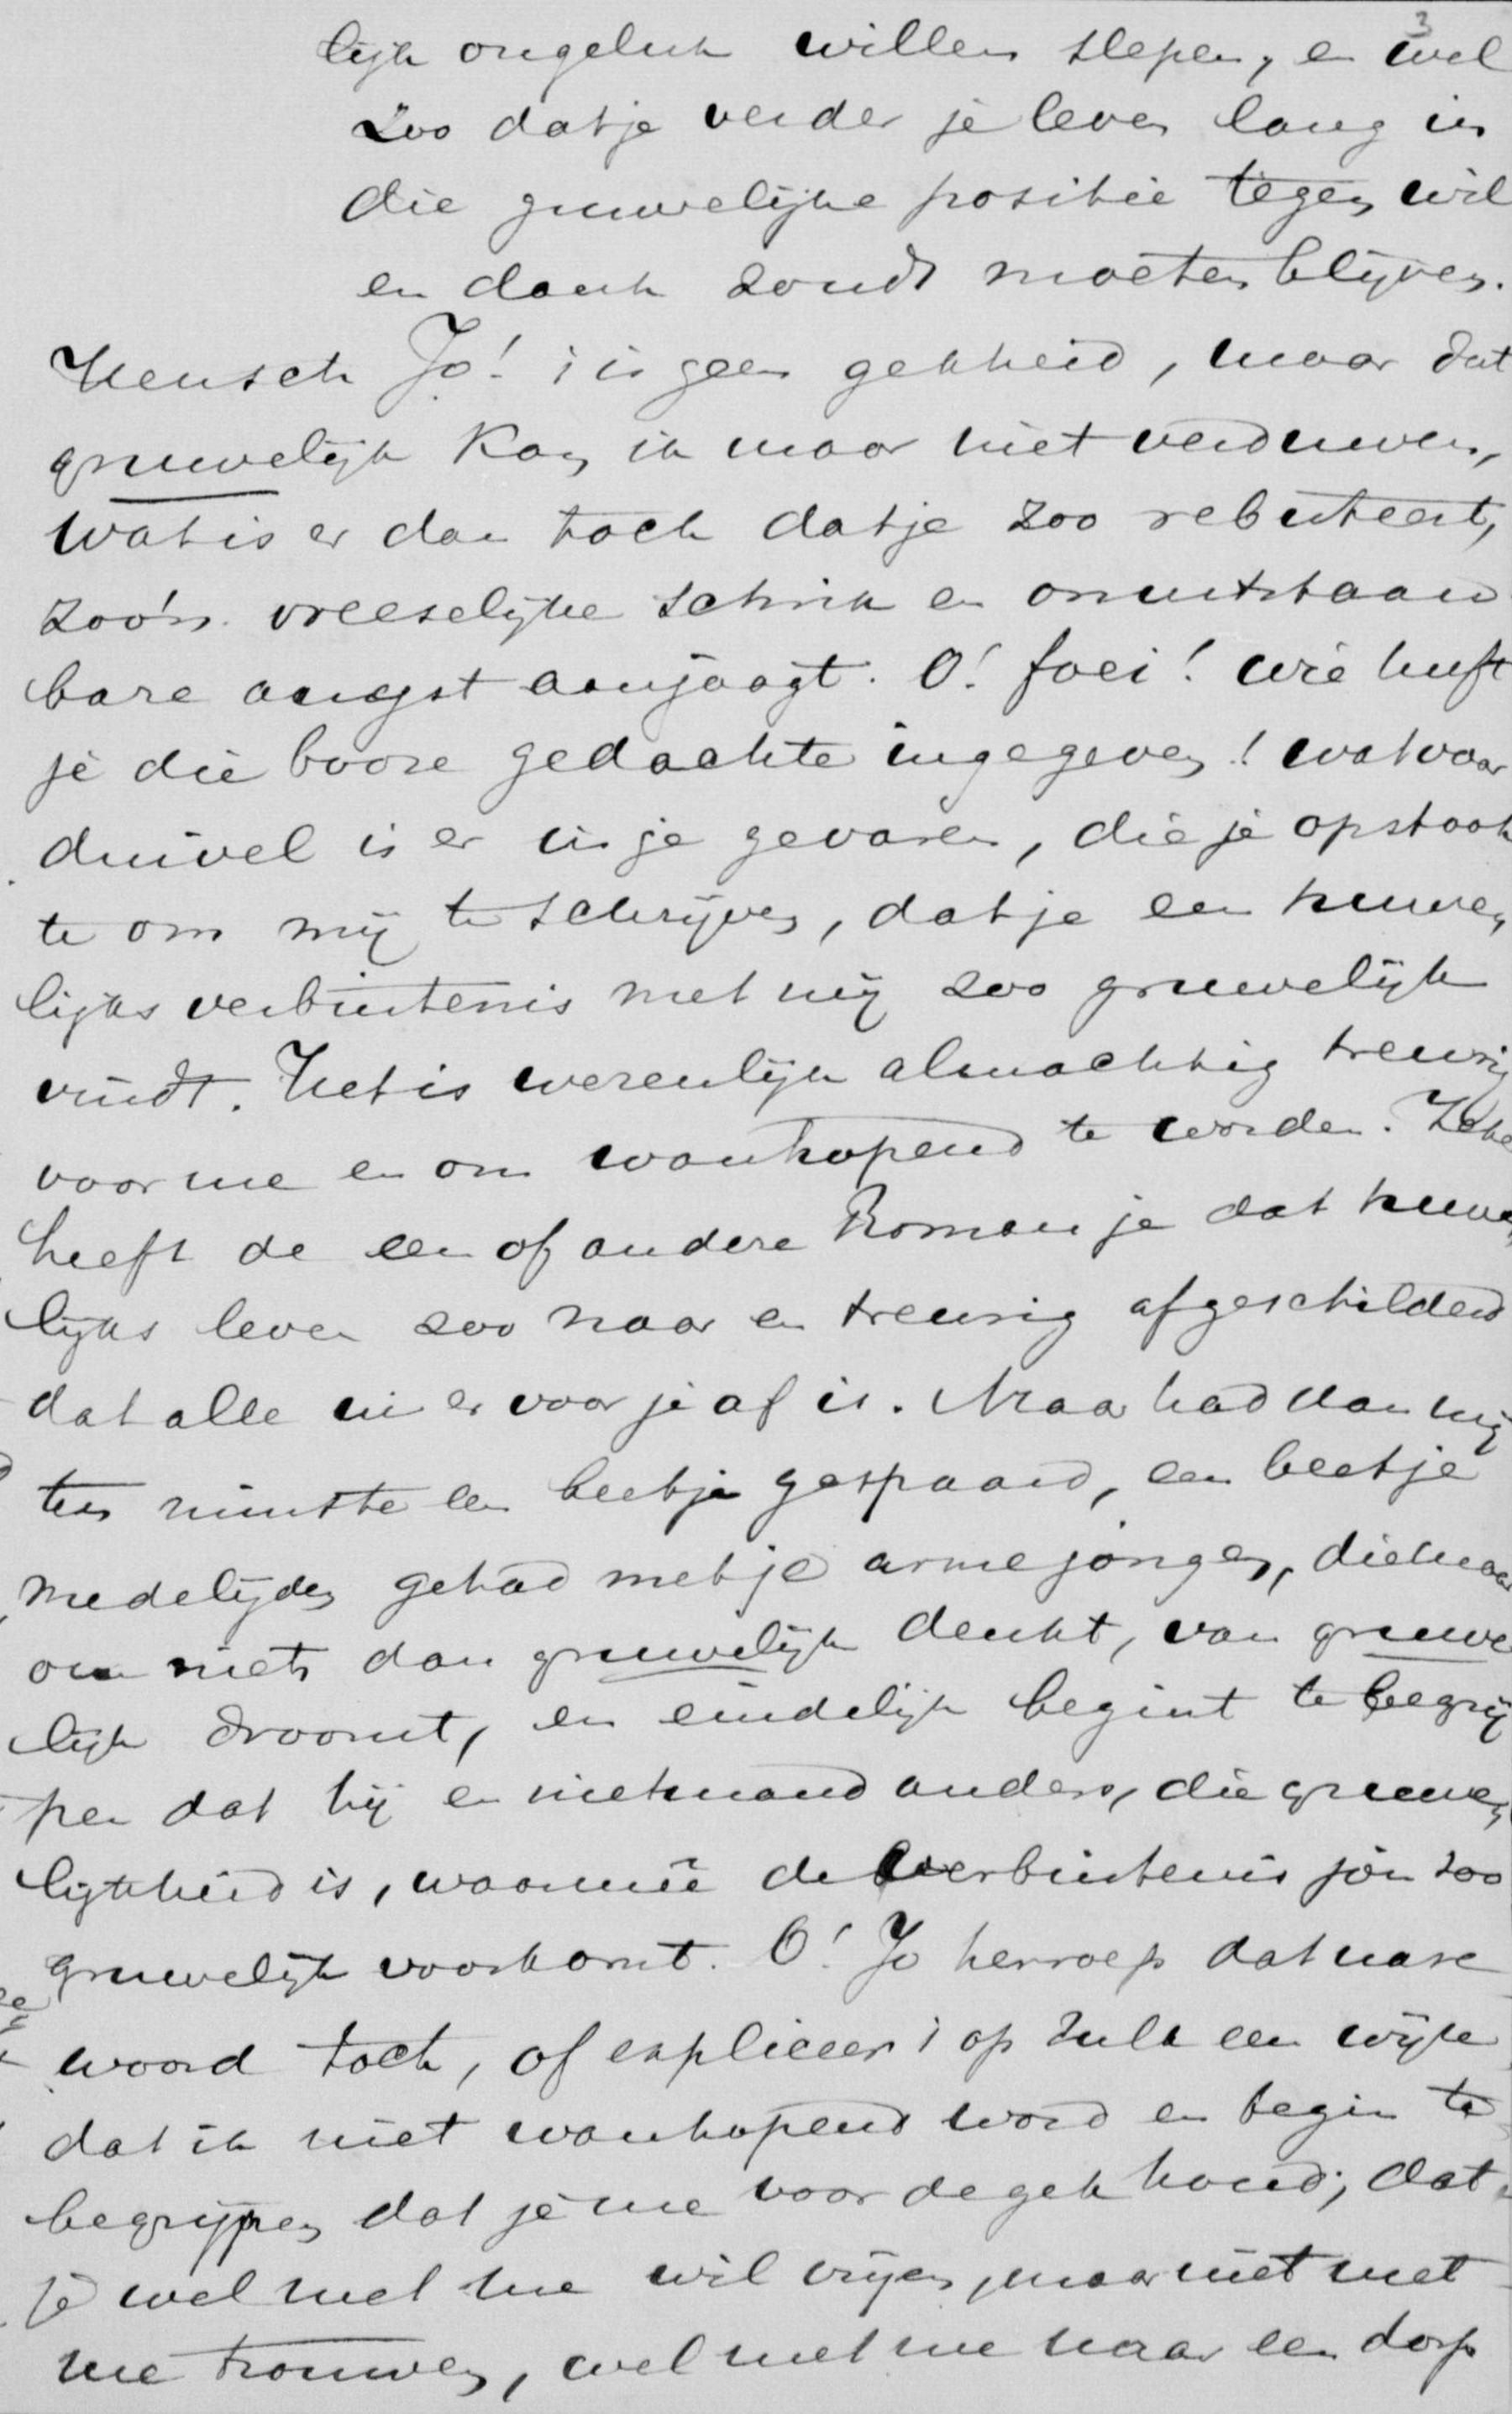 3
lijk ongeluk willen slepen, en wel
zoo dat je verder je leven lang in
die gruwelijke positie tegen wil
en dank zoudt moeten blijven.
Mensch Jo! 't is geen gekheid, maar dat
gruwelijk kan ik maar niet verduwen,
wat is er dan toch dat je zoo rebuteert,
zoo'n vreeselijke schrik en onuitstaan
bare angst aanjaagt. O! foei! wie heeft
je die booze gedachte ingegeven! wat voor
duivel is er in je gevaren, die je opstook
te om mij te schrijven, dat je een huwe,
lijks verbintenis met mij zoo gruwelijk
vindt. Het is wezenlijk almachtig treurig
voor me en om wanhopend te worden. Zeker
heeft de een of andere Roman je dat huwe,
lijks leven zoo naar en treurig afgeschilderd
dat alle uit er voor je af is. Maar had dan mij
ten minste een beetje gespaard, een beetje
medelijden gehad met je arme jongen, die haar
om niets dan gruwelijk denkt, van gruwe
lijk droomt, en eindelijk begint te begrij
pen dat hij en niemand anders, die gruwe,
lijkheid is, waarmeê de verbintenis jou zoo
gruwelijk voorkomt. O! Jo herroep dat nare
woord toch, of expliceer 't op zulk een wijze
dat ik niet wanhopend word en begin te
begrijpen dat je me voor de gek houd; dat
je wel met me wil vrijen, maar niet met
me trouwen, wel met me naar een dorp